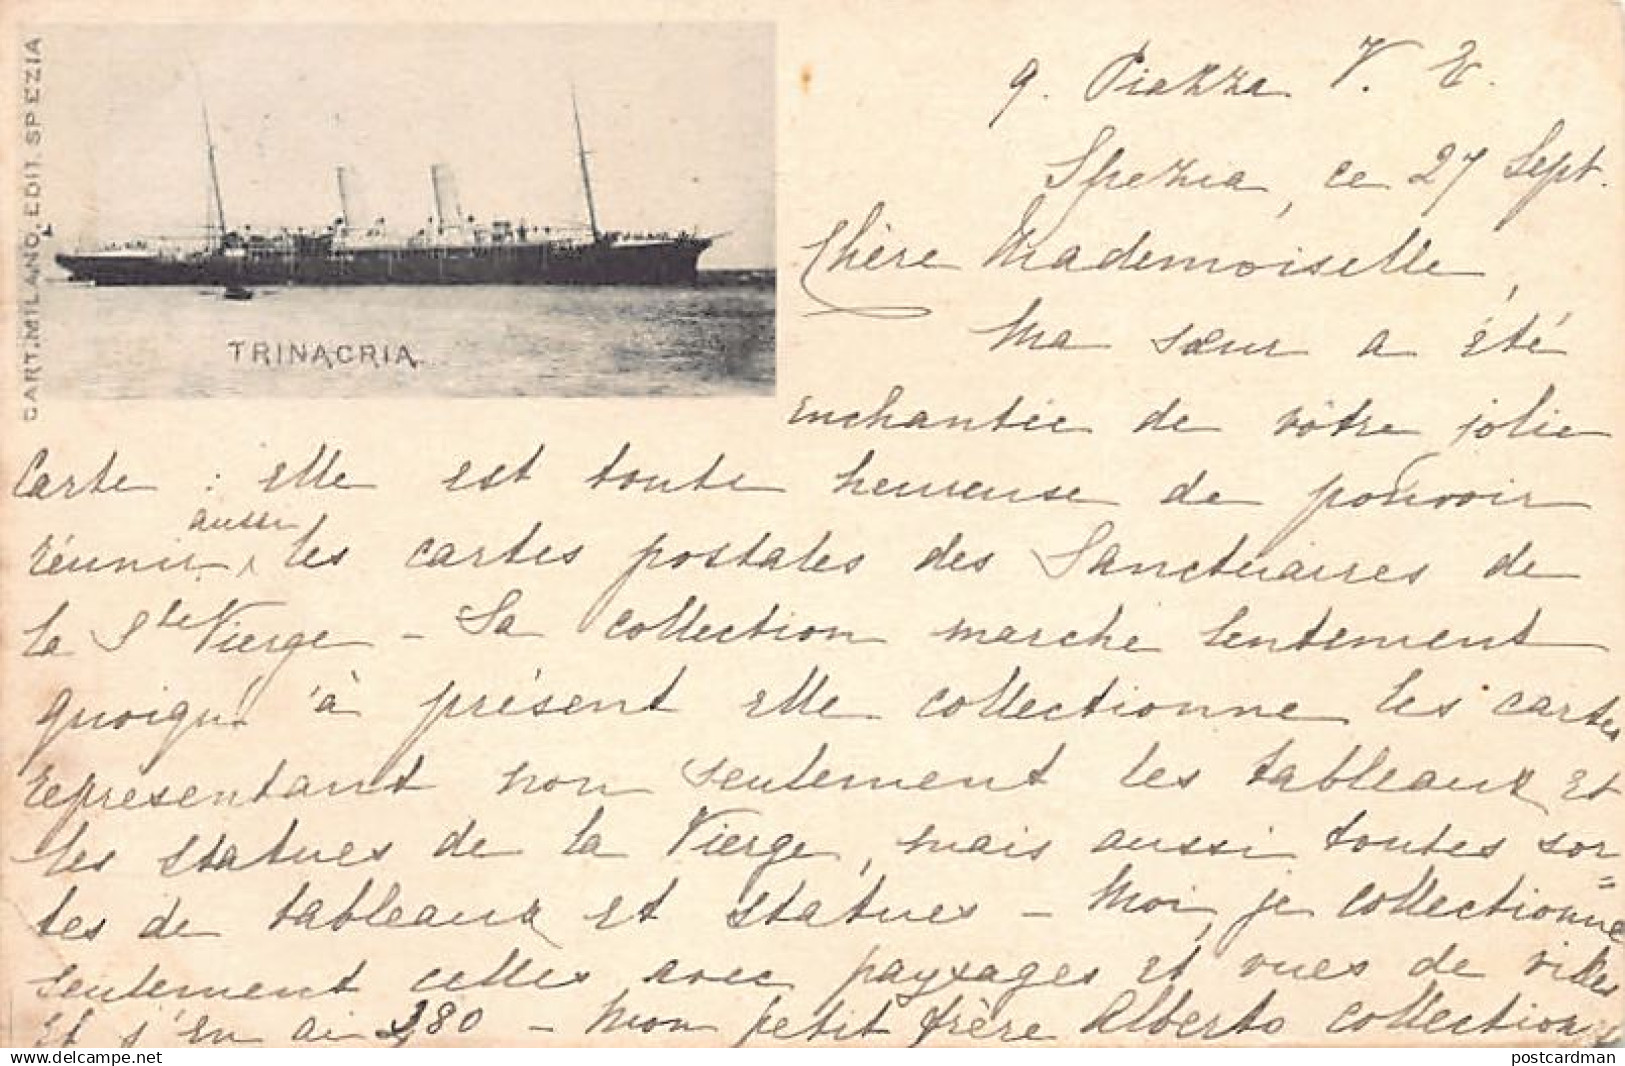 CART. MILANO. EDIT. SPEZIA
TRINACRIA
9. Piazza V. E.
Spezia, ce 27 Sept.
Chère Mademoiselle,
Ma sœur a été
enchantée de vôtre jolie
Carte : elle est toute heureuse de pouvoir
aussi
réunir les cartes postales des Sanctuaires de
la Ste Vierge - Sa collection marche lentement
quoiqu' à présent elle collectionne les cartes
représentant non seulement les tableaux et
les statues de la Vierge, mais aussi toutes sor=
tes de tableaux et statues - Moi, je collectionne
seulement celles avec paysages et vues de villes
et j'en ai 380 - Mon petit frère Alberto collectionne
www.delcampe.net
postcardman